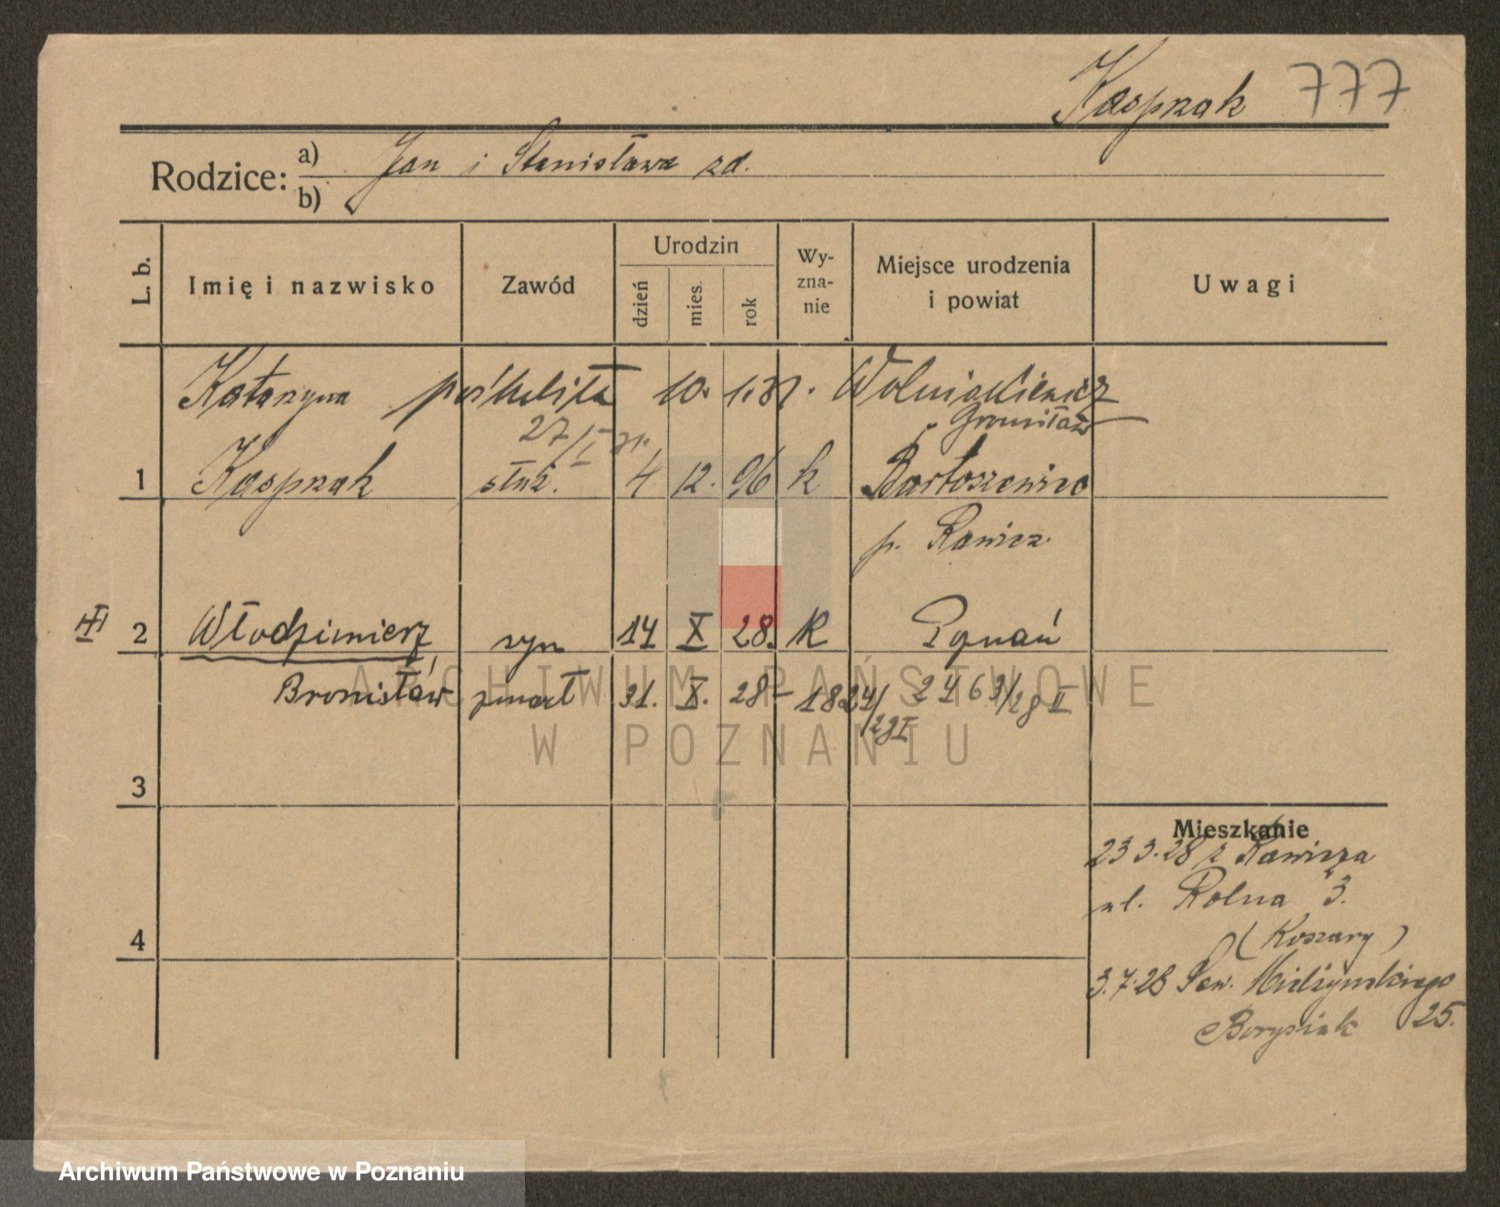 Kasprzak 777
Rodzice: a) Jan i Stanisława zd.
b)
L. b.
Imię i nazwisko
Zawód
Urodzin
dzień
mies.
rok
Wy-
zna-
nie
Miejsce urodzenia
i powiat
Uwagi
Katarzyna poślubiła 10. 1.31.
27/I 31.
1 Kasprzak służ. 4 12. 96 k Bartoszewice
p. Rawicz
2 Włodzimierz syn 14 X 28. K Poznań
Bronisław zmarł 31. X. 28 - 1824/29 I 2463/28 II
3
4
Mieszkanie
23 3.28 z Rawicza
ul. Rolna 3.
(Koszary)
3.7.28 Sew. Mielżyńskiego
25.
Borysiak
ARCHIWUM PAŃSTWOWE
W POZNANIU
Archiwum Państwowe w Poznaniu